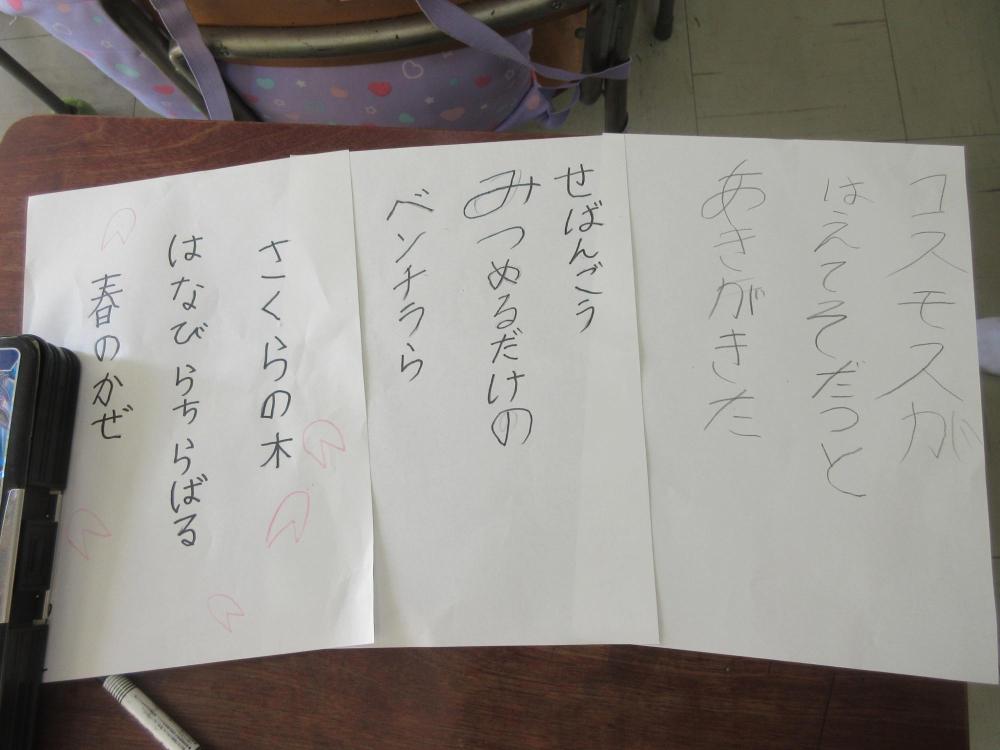 コスモスが
はえてそだつと
あきがきた
せばんごう
みつめるだけの
ベンチラら
さくらの木
はなびらちらばる
春のかぜ